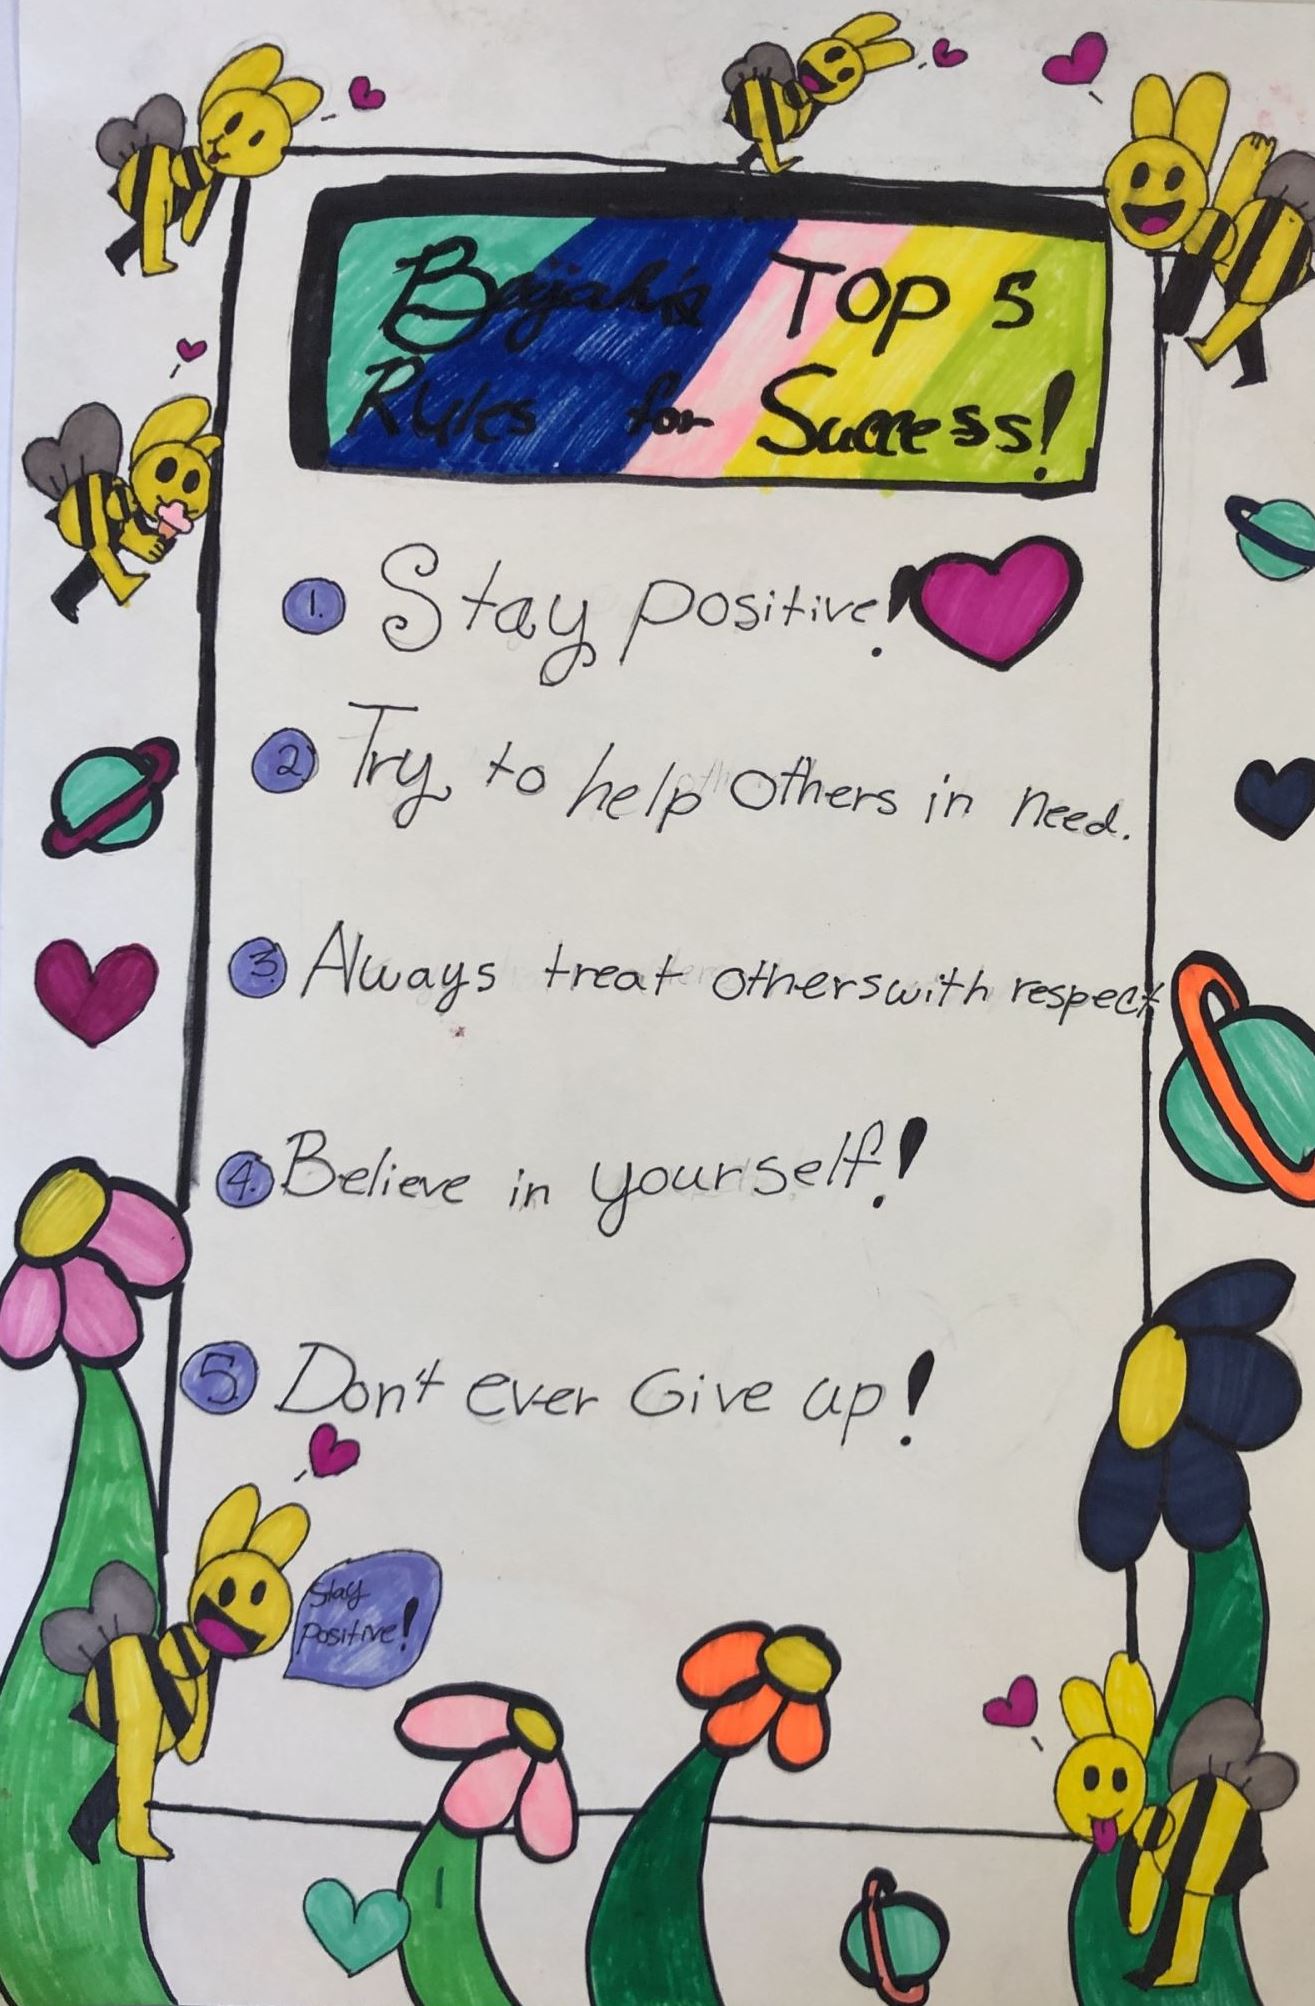 TOP 5
Rules for Success!
1. Stay positive!
2 Try to help others in need.
3. Always treat others with respect
4. Believe in yourself!
5. Don't ever Give up!
Stay
positive!